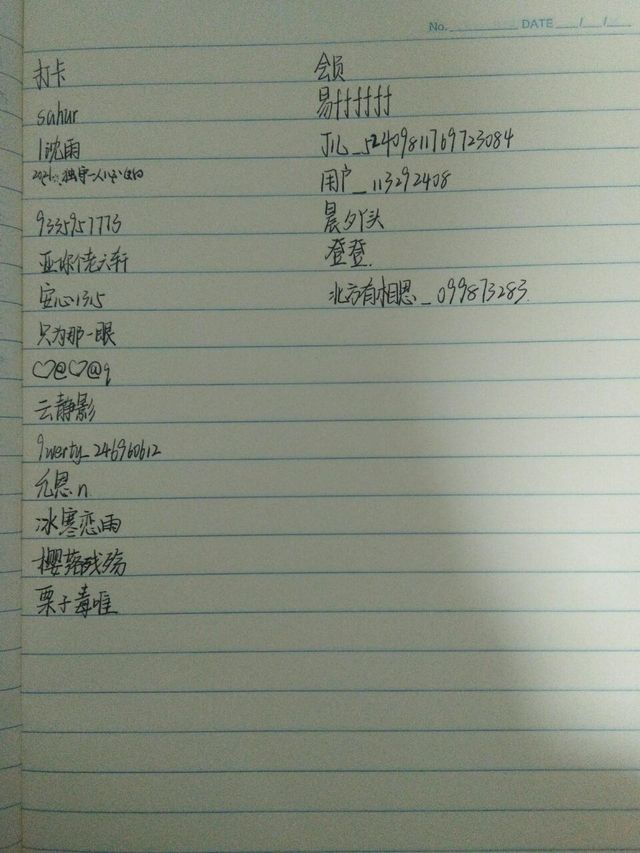 No. DATE / /
打卡
sahur
1沈雨
9335957773
安心1315
只为那一眼
♡@♡@q
云静影
qwerty_246960612
允恩n
冰寒恋雨
樱落残殇
栗子毒唯
会员
易ffffff
JL_5240981769723084
用户_113292408
晨夕丫头
登登.
北方有相思_099873283